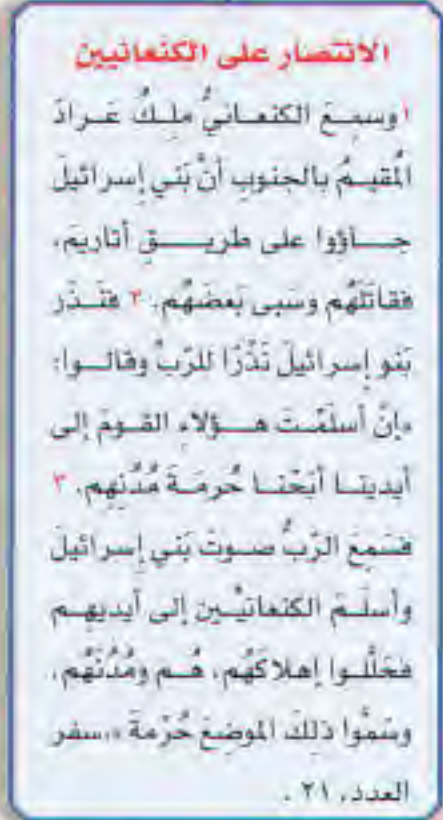 الانتصار على الكنعانيين
١ وسمِعَ الكنعانيُّ ملِكُ عَرادَ
المُقيمُ بالجنوبِ أنَّ بَني إسرائيلَ
جاؤوا على طريقِ أتاريمَ،
فقاتَلَهُم وسَبى بَعضَهُم. ٢ فنَذَر
بَنو إسرائيلَ نَذْرًا للرّبِّ وقالوا:
«إنْ أسلَمْتَ هؤلاءِ القومَ إلى
أيدينا أبَحْنا حُرمَةَ مُدُنِهِم. ٣
فسَمِعَ الرّبُّ صوتَ بَني إسرائيلَ
وأسلَمَ الكنعانيِّينَ إلى أيديهِم
فحَلَّلوا إهلاكَهُم، هُم ومُدُنَهُم،
وسَمُّوا ذلكَ الموضِعَ حُرْمةَ «،سفر
العدد، ٢١ .